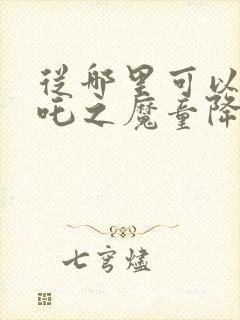 從哪里可以
吒之魔童降
七穹燼